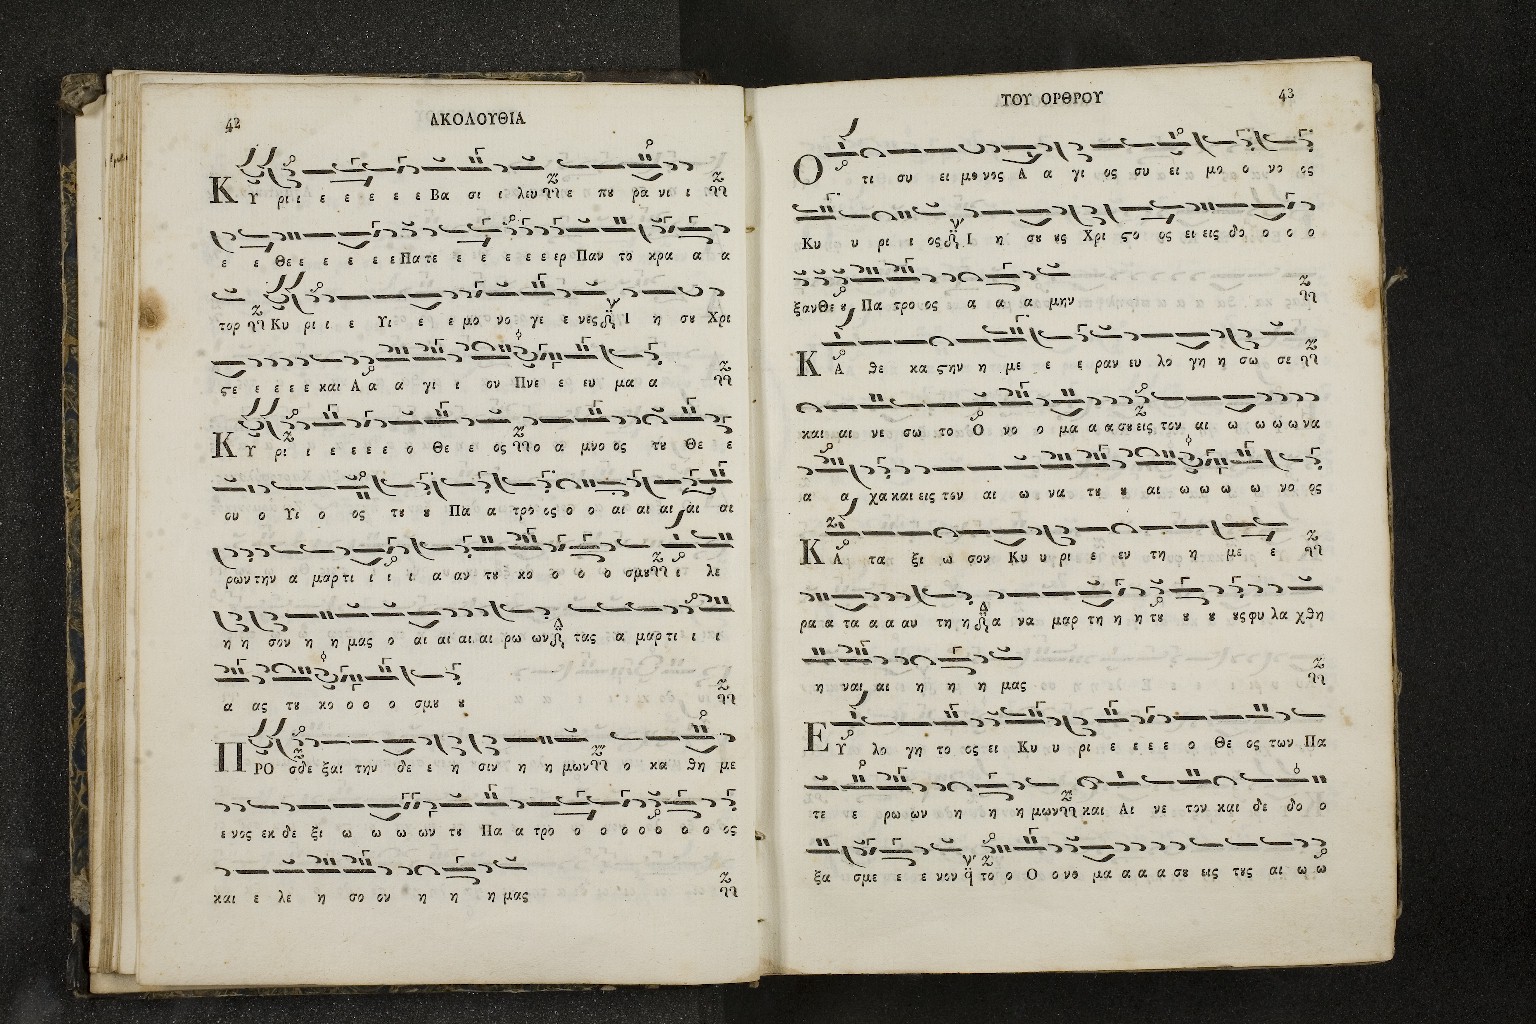 42
ΑΚΟΛΟΥΘΙΑ
Κ Υ ρι ι ε ε ε ε ε Βα σι ι λευ ε που ρα νι ι
ε ε Θε ε ε ε ε ε Πα τε ε ε ε ε ε ερ Παν το κρα α α
τορ Κυ ρι ι ε Υι ε ε μο νο γε ε νες Ι η σου Χρι
ϛε ε ε ε ε και Α α α γι ι ον Πνε ε ευ μα α
Κ Υ ρι ι ε ε ε ε ο Θε ε ος ο α μνο ος του Θε ε
ου ο Υι ο ος του ου Πα α τρο ος ο ο αι αι αι αι αι
ρων την α μαρ τι ι ι ι α αν του κο ο ο ο σμου ε λε
η η σον η η μας ο αι αι αι αι ρω ων τας α μαρ τι ι ι
α ας του κο ο ο ο σμου ου
Π ΡΟ σδε ξαι την δε ε η σιν η η μων ο κα θη με
ε νος εκ δε ξι ω ω ω ων του Πα α τρο ο ο ο ο ο ο ο ος
και ε λε η σο ον η η η μας
ΤΟΥ ΟΡΘΡΟΥ
43
Ο τι συ ει μο νος Α α γι ος συ ει μο ο νο ος
Κυ υ ρι ι ος Ι η σου ους Χρι ϛο ος ει εις δο ο ο ο
ξαν Θε ου Πα τρο ος α α α μην
Κ Α θε κα ϛην η με ε ε ραν ευ λο γη η σω σε
και αι νε σω το Ο νο ο μα α α σου εις τον αι ω ω ω ω να
α α χα και εις τον αι ω να του ου αι ω ω ω ω νο ος
Κ Α τα ξι ω σον Κυ υ ρι ε εν τη η με ε
ρα α τα α α αυ τη η α να μαρ τη η η του ου ου ους φυ λα χθη
η ναι αι η η η μας
Ε Υ λο γη το ος ει Κυ υ ρι ε ε ε ε ο Θε ος των Πα
τε ε ρω ων η η η μων και Αι νε τον και δε δο ο
ξα σμε ε ε νον το ο Ο ο νο μα α α α σου εις τους αι ω ω